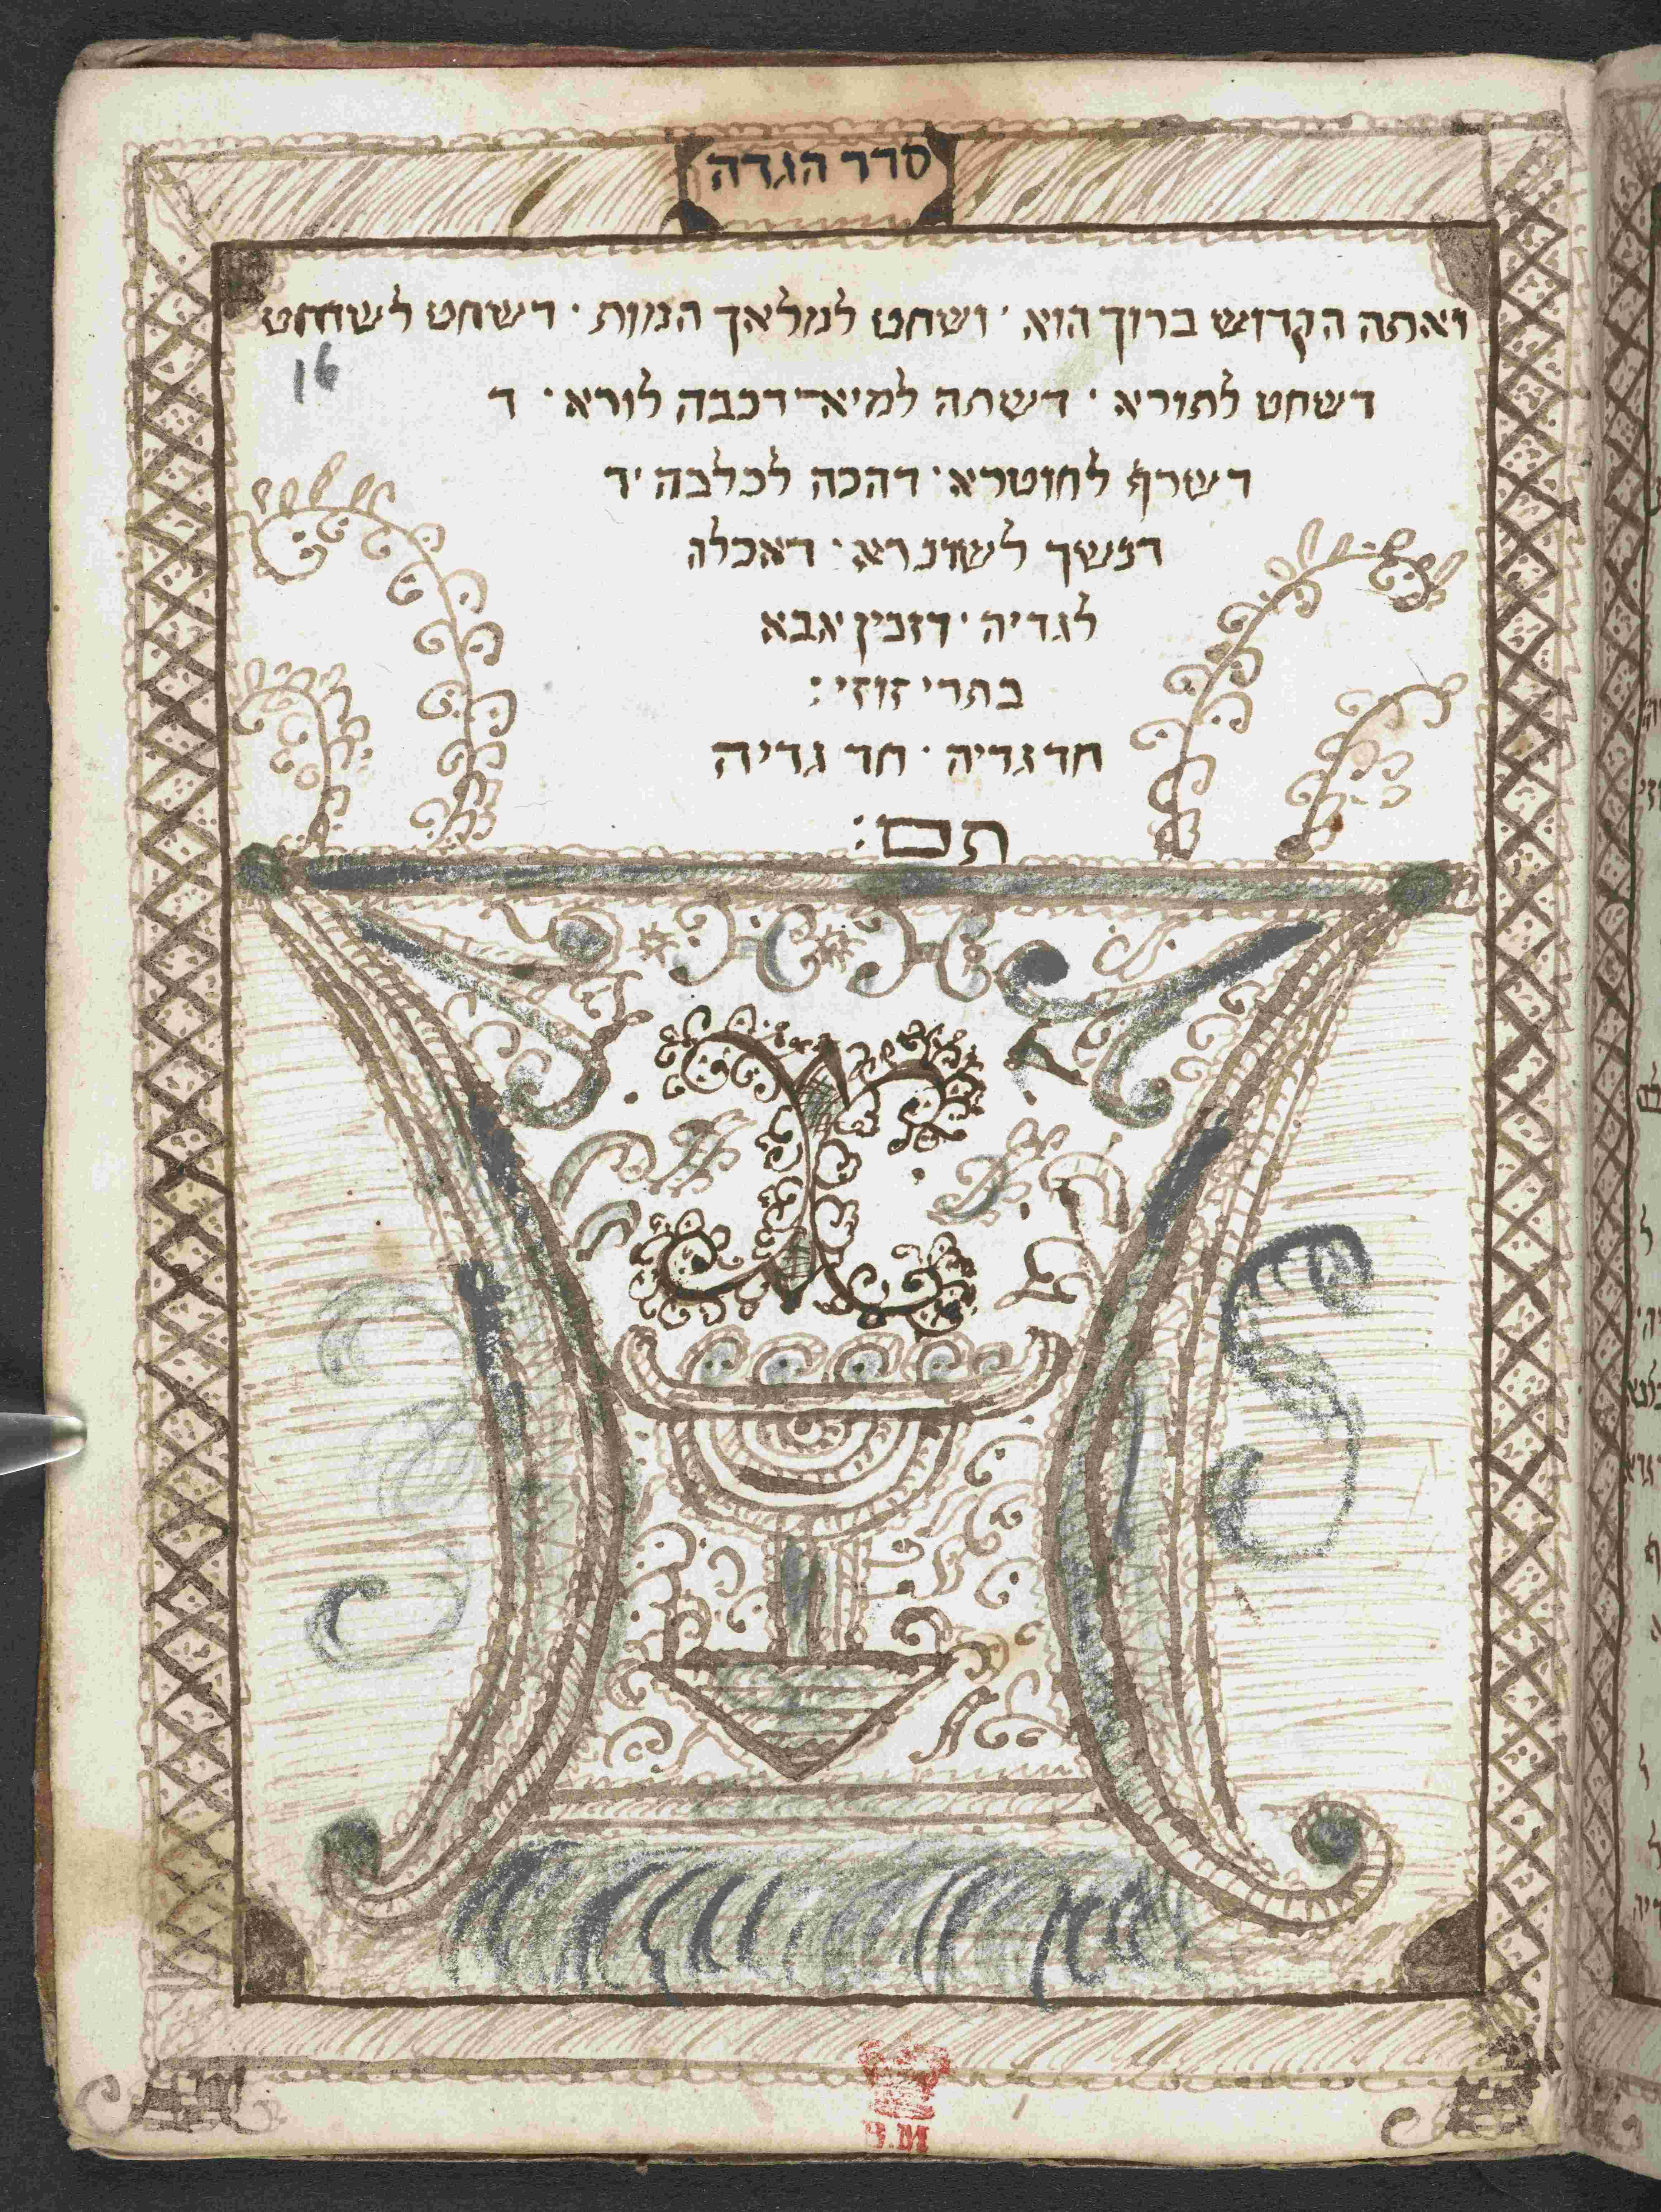 סדר הגדה
ואתה הקדוש ברוך הוא · ושחט למלאך המות · דשחט לשוחט
16
דשחט לתורא · דשתה למיא דכבה לנורא · ד
דשרף לחוטרא · דהכה לכלבה · ד
דנשך לשונרא · דאכלה
לגדיה · דזבין אבא
בתרי זוזי :
חד גדיה · חד גדיה
תם :